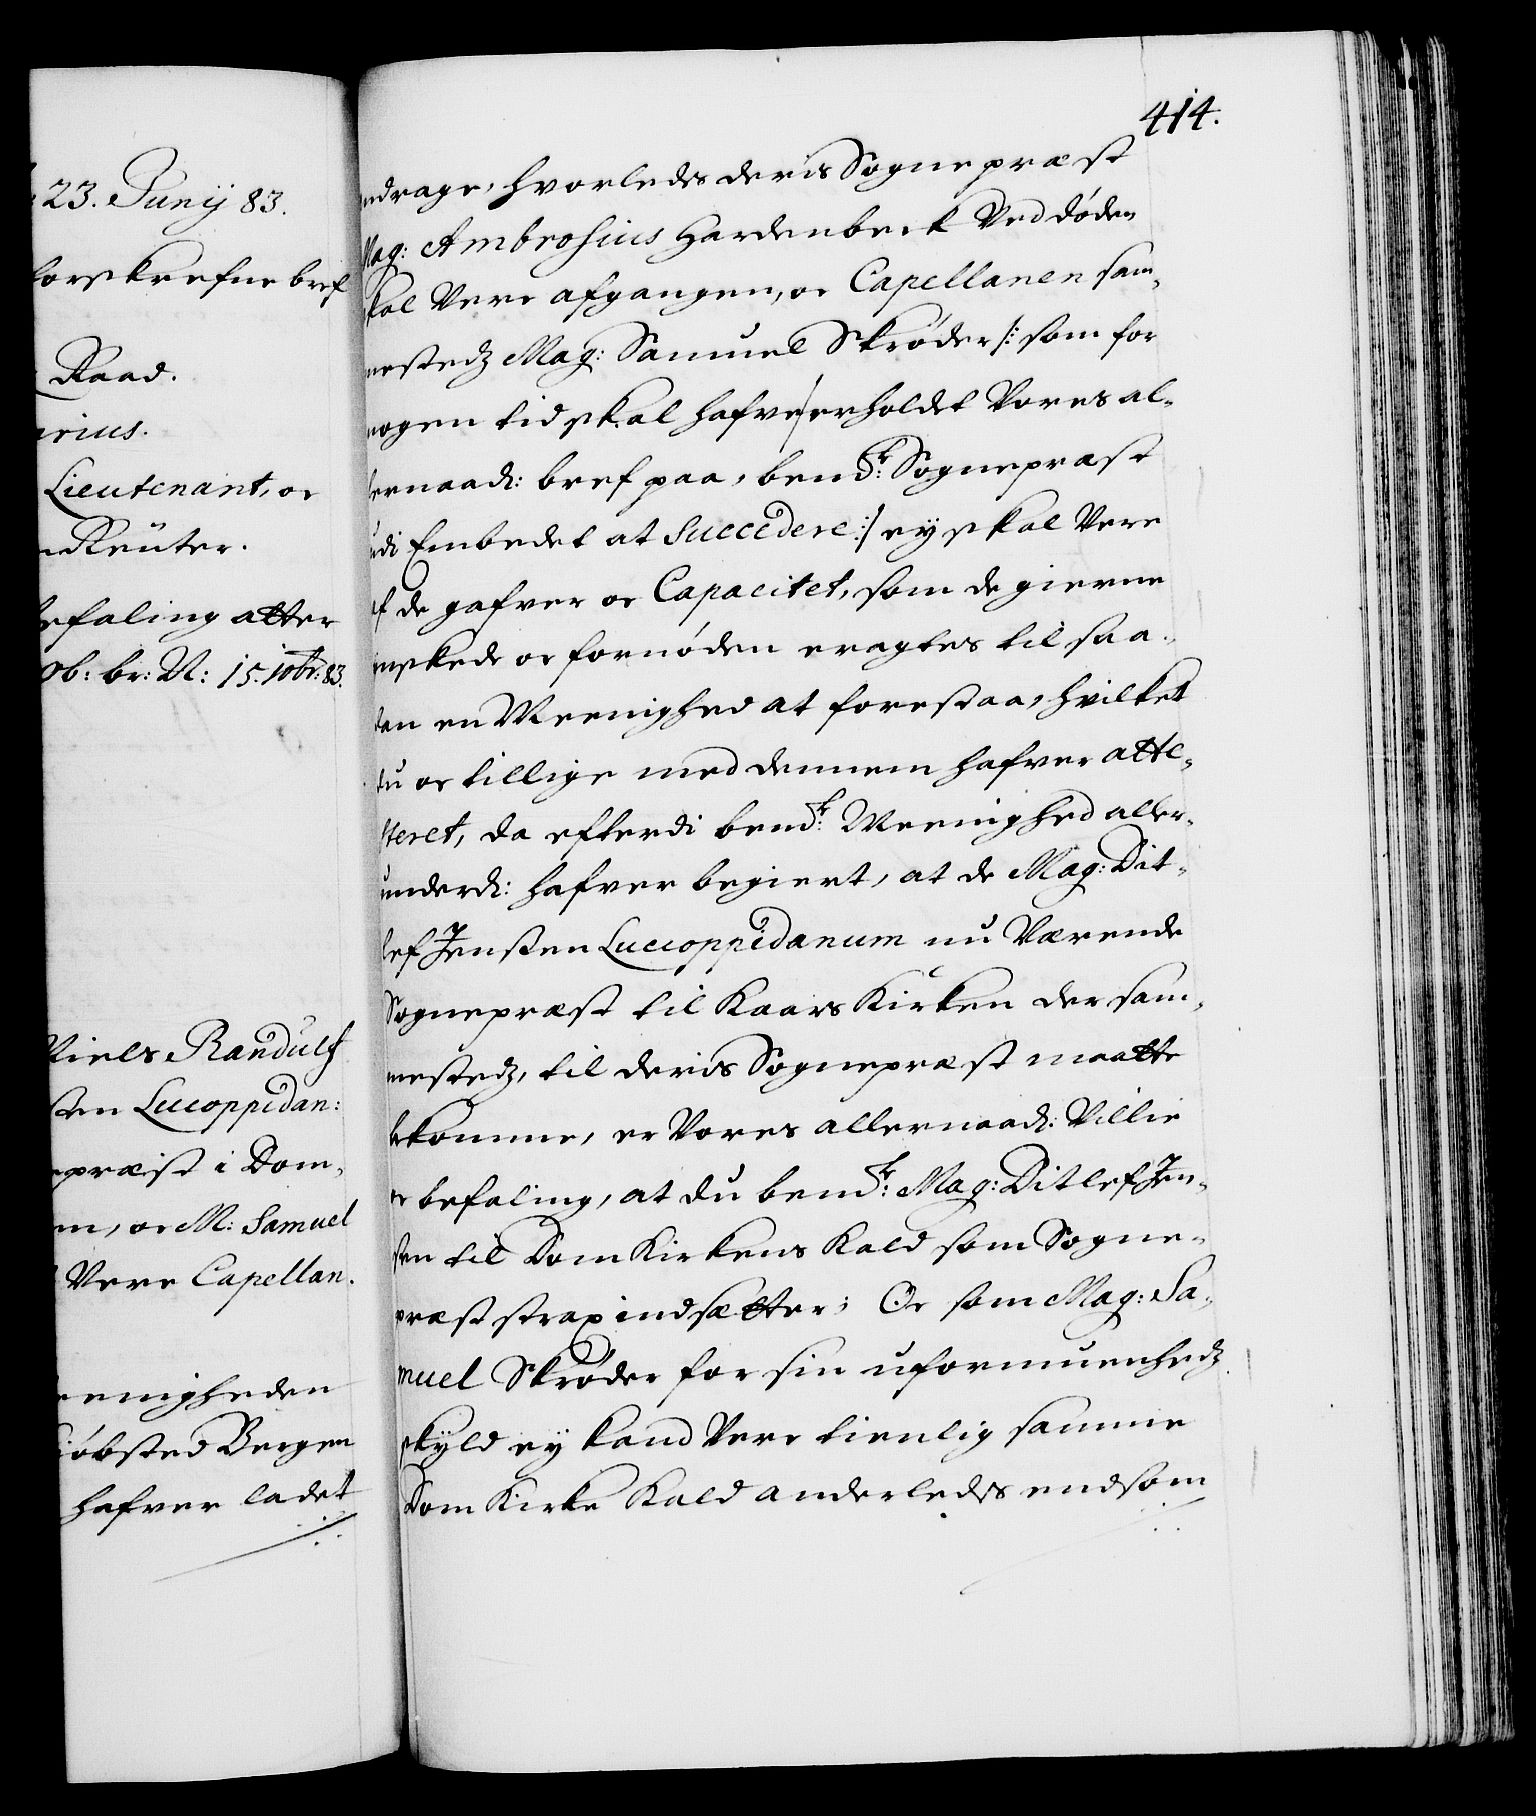 23. Junij 83.
forskrefne bref
Raad.
arius.
Lieutenant, oc
Reüter.
befaling atter
ob: br: N: 15. 10br: 83.
Niels Randulf
sten Lucoppidan:
epræst i Dom-
en, oc M: Samuel
Vere Capellan.
eenigheden
iöbsted Bergen
hafver ladet
414.
ndrage, hvorledes deris Sognepræst
Mag: Ambrosius Hardenbeck Ved döden
skal Vere afgangen, oc Capellanen sam-
mestedz Mag: Samuel Skröder /: som for
nogen tid skal hafve erholdet Vores al-
lernaadi: bref paa, bemte: Sognepræst
udi Embedet at Succedere :/ ey skal Vere
af de gafver oc Capacitet, som de gierne
önskede oc fornöden eragtes til saa-
dan en Meenighed at forestaa, hvilket
du oc tillige med dennem hafver atte-
steret, da efterdi bemte: Meenighed aller-
underdi: hafver begiert, at de Mag: Dit-
lef Jensten Luccoppidanum nu Værende
Sognepræst til Kaars Kirken der sam-
mestedz, til deris Sognepræst maatte
bekomme, er Vores allernaadi: Villie
oc befaling, at du bemte: Mag: Ditlef Jen-
sten til Dom Kirkens Kald som Sogne-
præst strax indsætter; Oc som Mag: Sa-
muel Skröder for sin uformuenhedz
skyld ey kand Vere tienlig samme
Dom Kirke Kald anderledes end som